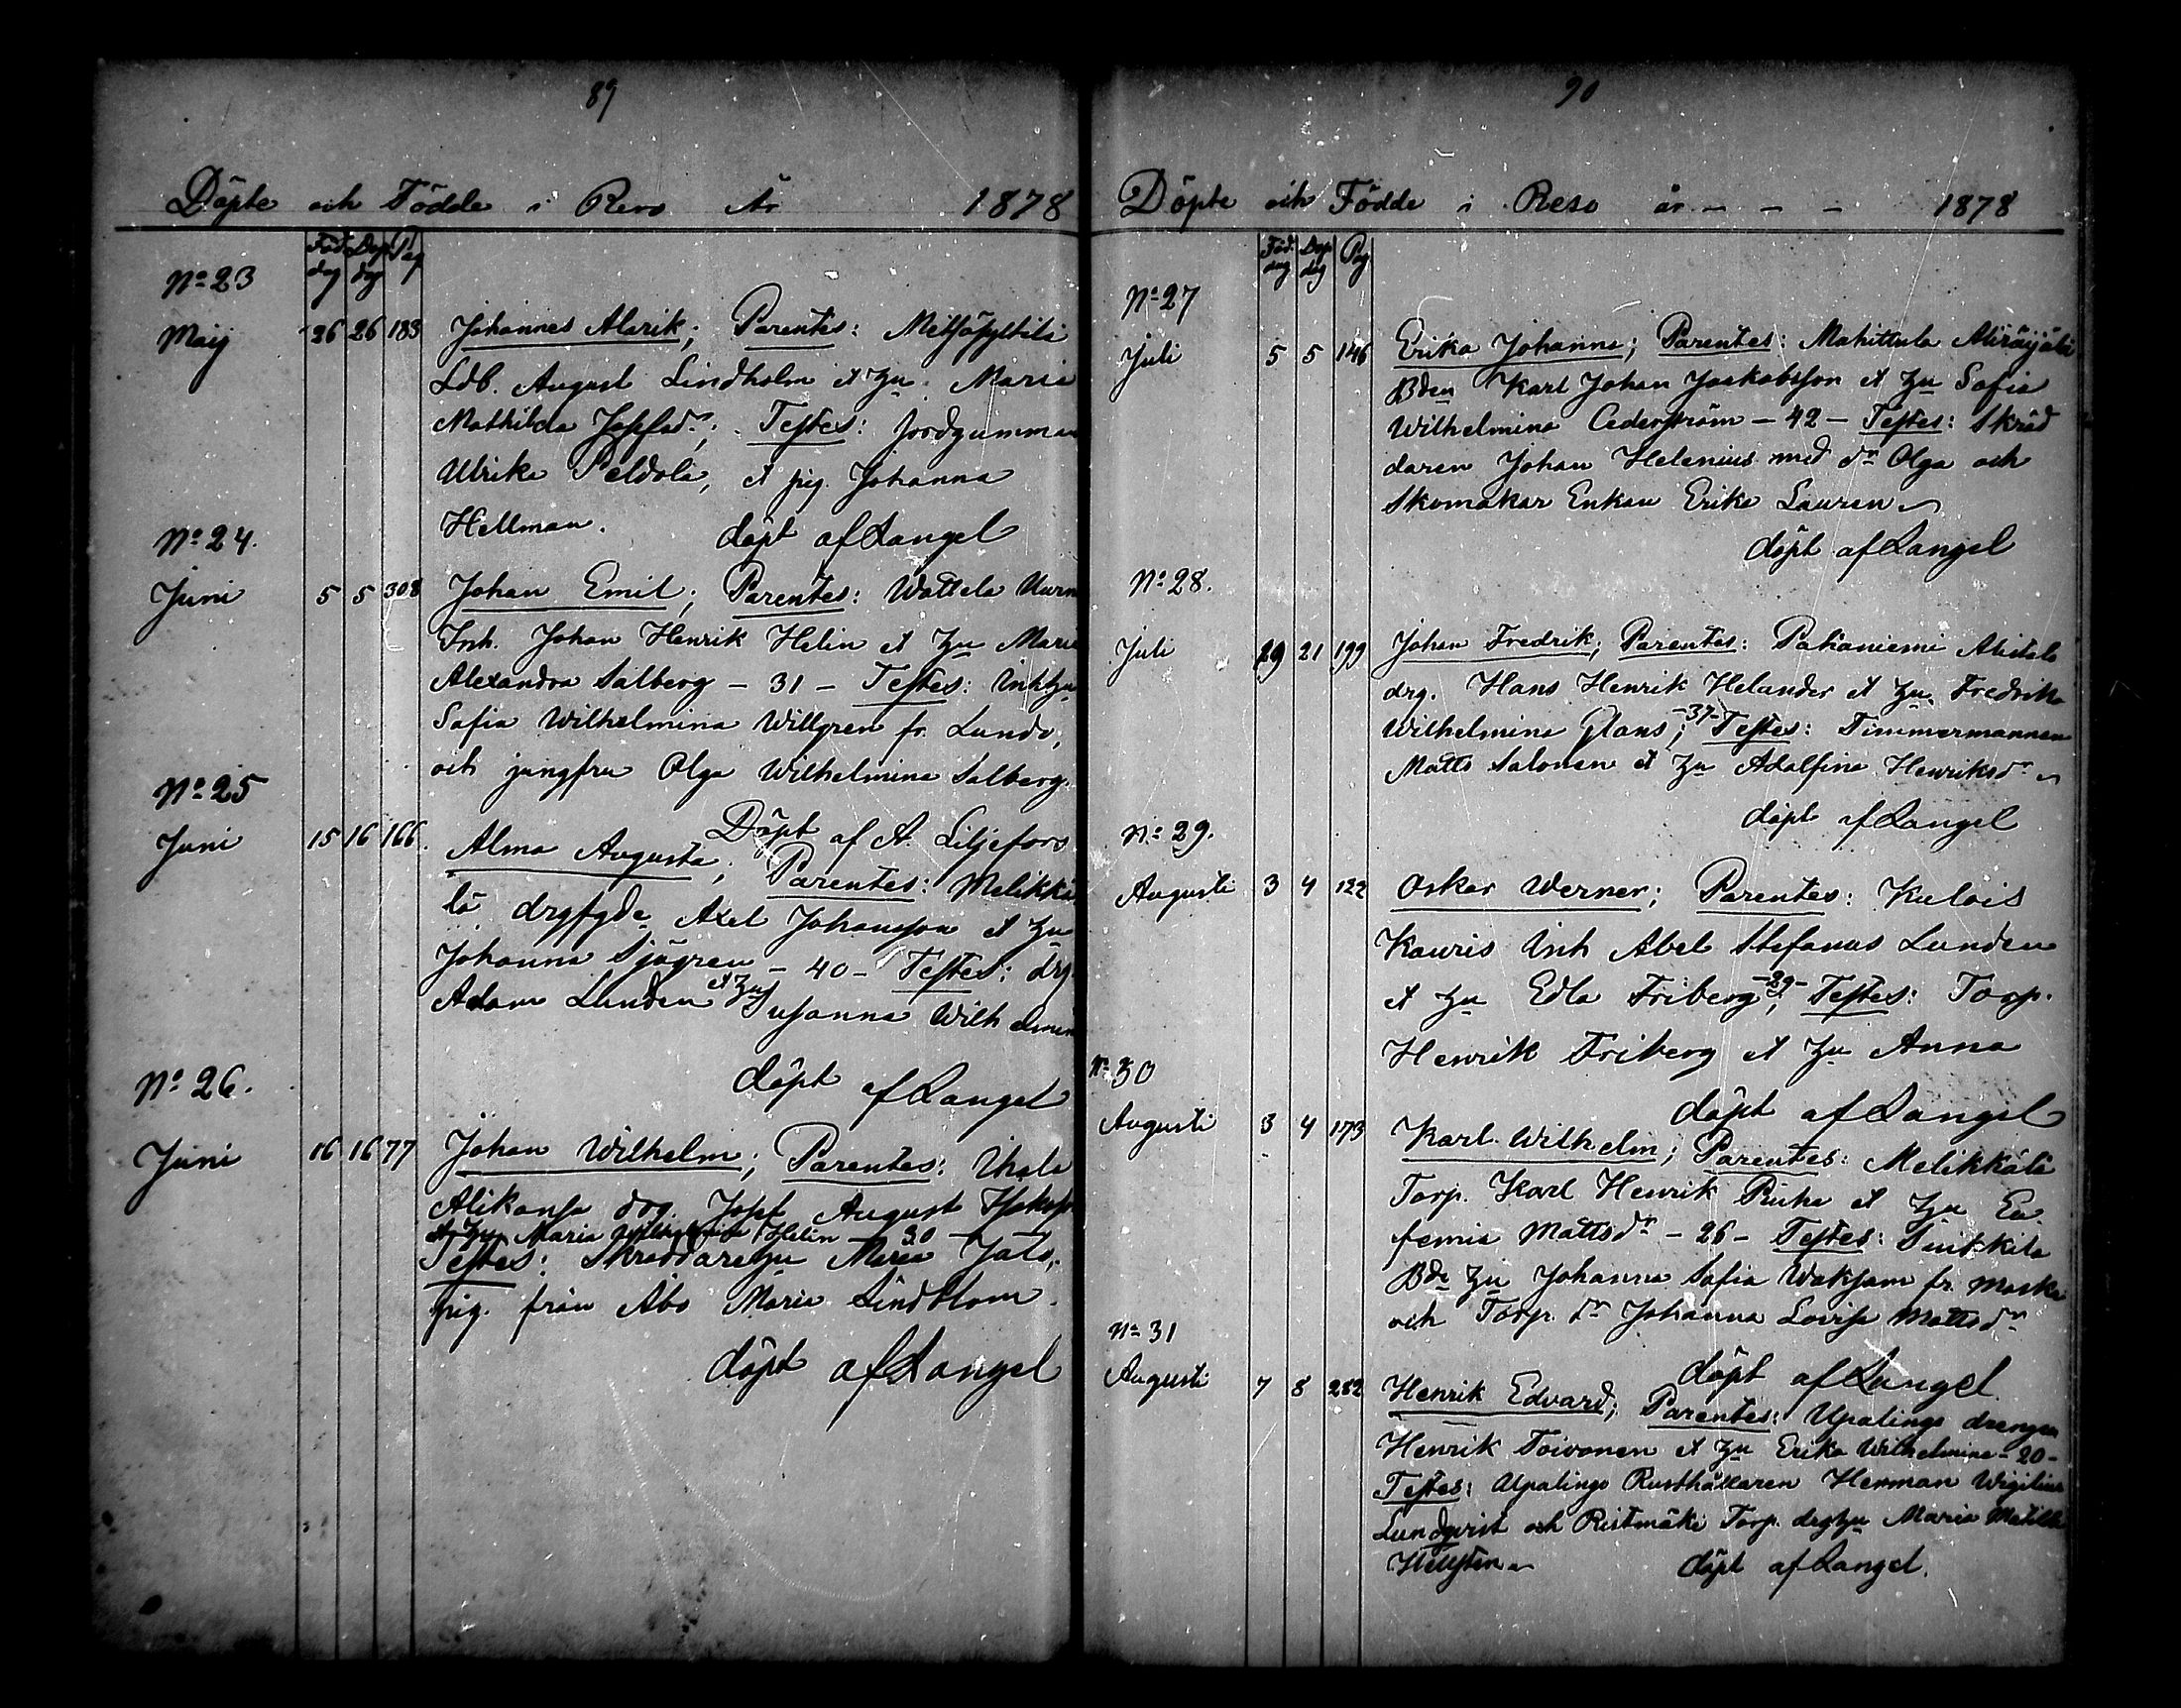 89
Döpte och Födde i Reso År 1878
Föd. dag Dop dag Pag
No 23
Maij 26 26 183 Johannes Alarik; Parentes:
Ldb. August Lindholm et hu Maria
Mathilda Josefsdr; Testes: Jordgumman
Ulrika Peldola, et pig. Johanna
Hellman. döpt af Langel
No 24.
Juni 5 5 308 Johan Emil; Parentes: Wattela
Inh. Johan Henrik Helin et hu Maria
Alexandra Salberg – 31 – Testes: Inhhu
Sofia Wilhelmina Willgren fr. Lundo,
och jungfru Olga Wilhelmina Salberg.
Döpt af A. Liljefors
No 25
Juni 15 16 166. Alma Augusta; Parentes: Melikkä
lä Axel Johansson et hu
Johanna Sjögren – 40 – Testes: drg.
Adam Lunden et hu Susanna Wilhelmina
döpt af Langel
No 26.
Juni 16 16 77 Johan Wilhelm; Parentes: Ihala
Alikansa drg. Josef August
et hu Maria Helin – 30 –
Testes: Skraddarehu Maria
pig. från Åbo Maria Lindblom.
döpt af Langel
90
Döpte och Födde i Reso år - - - 1878
Föd. dag Dop dag Pag
No 27
Juli 5 5 146 Erika Johanna; Parentes: Mahittula
Bden Karl Johan Jaakobsson et hu Sofia
Wilhelmina Cederström – 42 – Testes: Skräd
daren Johan Helenius med dr Olga och
Skomakar Enkan Erika Lauren
döpt af Langel
No 28.
Juli 19 21 199 Johan Fredrik; Parentes: Pahaniemi Alistalo
drg. Hans Henrik Helander et hu Fredrika
Wilhelmina Glans; – 37 – Testes: Timmermannen
Matts Salonen et hu Adolfina Henriksdr
döpt af Langel
No 29.
Augusti 3 4 122 Oskar Werner; Parentes: Kulois
Kauris Inh Abel Stefanus Lunden
et hu Edla Friberg – 29 –; Testes: Torp.
Henrik Friberg et hu Anna
döpt af Langel
No 30
Augusti 3 4 173 Karl Wilhelm; Parentes: Melikkälä
Torp. Karl Henrik et hu Eu
femia Mattsdr – 26 – Testes:
Bde hu Johanna Sofia fr. Masku
och Torp. dr Johanna Lovisa Mattsdr
döpt af Langel
No 31
Augusti 7 8 282 Henrik Edvard; Parentes: Upalingo drengen
Henrik Toivonen et hu Erika Wilhelmina – 20 –
Testes: Upalingo Rusthållaren Herman Wigilius
Lundqvist och Ristmäki Torp. drghu Maria Matilda
Hellsten döpt af Langel.